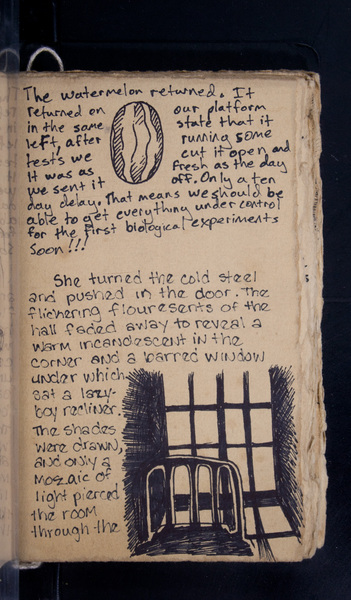 The watermelon returned. It
returned on our platform
in the same state that it
left, after running some
tests we cut it open, and
it was as fresh as the day
we sent it off. Only a ten
day delay. That means we should be
able to get everything under control
for the first biological experiments
soon!!!
She turned the cold steel
and pushed in the door. The
flickering flouresents of the
hall faded away to reveal a
warm incandescent in the
corner and a barred window
under which
sat a lazy-
boy recliner.
The shades
were drawn,
and only a
mosaic of
light pierced
the room
through the